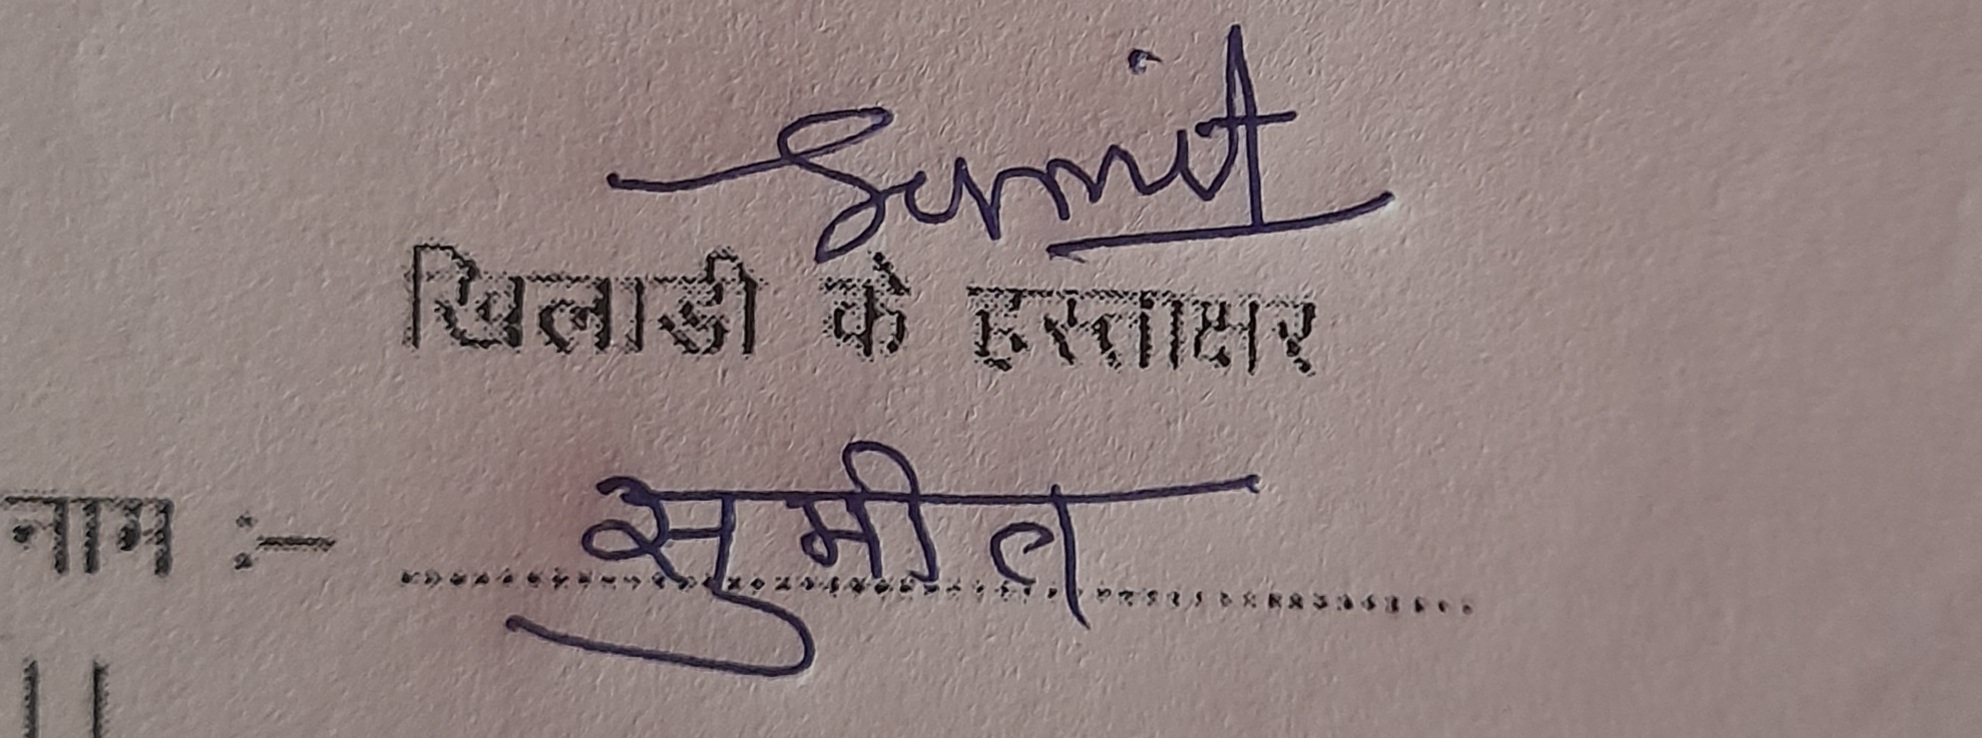 Sumit
खिलाडी के हस्ताक्षर
नाम :- सुमीत